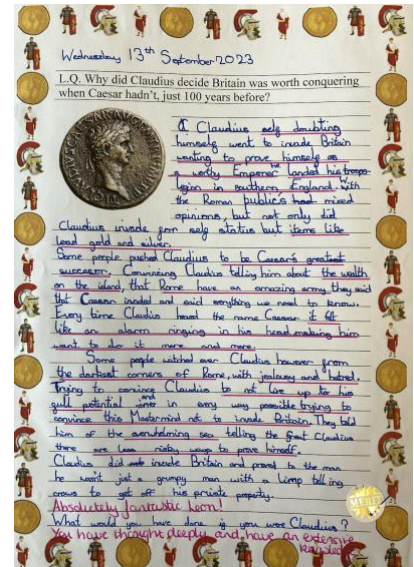 Wednesday 13th September 2023
L.Q. Why did Claudius decide Britain was worth conquering
when Caesar hadn't, just 100 years before?
Claudius self doubting
himself went to invade Britain
wanting to prove himself as
a worthy Emperor he landed his troops-
legion in southern England. With
the Roman publics had mixed
opinions, but not only did
Claudius invade for self status but items like
lead gold and silver.
Some people pushed Claudius to be Caesar's greatest
successor. Convincing Claudius telling him about the wealth
on the island, that Rome have an amazing army, they said
that Caesar landed and said everything we need to know.
Every time Claudius heard the name Caesar it felt
like an alarm ringing in his head making him
want to do it more and more.
Some people watched over Claudius however from
the darkest corners of Rome, with jealousy and hatred.
Trying to convince Claudius to not live up to his
full potential and in every way possible trying to
convince this Mastermind not to invade Britain. They told
him of the overwhelming sea, telling the great Claudius
there are less risky ways to prove himself.
Claudius did invade Britain and proved to the man
he wasn't just a grumpy man with a limp telling
crows to get off his private property.
Absolutely fantastic Leon!
What would you have done if you were Claudius?
You have thought deeply and have an extensive
knowledge
MERIT